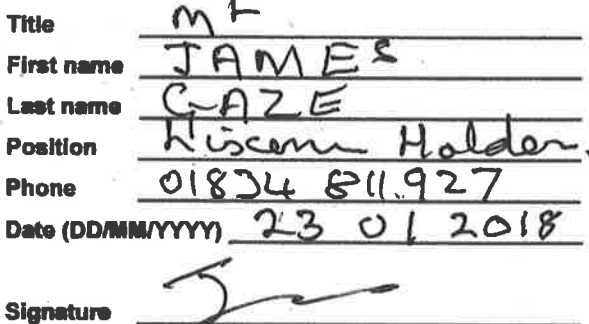 Title Mr
First name JAMES
Last name GAZE
Position Liscence Holder.
Phone 01834 811.927
Date (DD/MM/YYYY) 23 01 2018
Signature